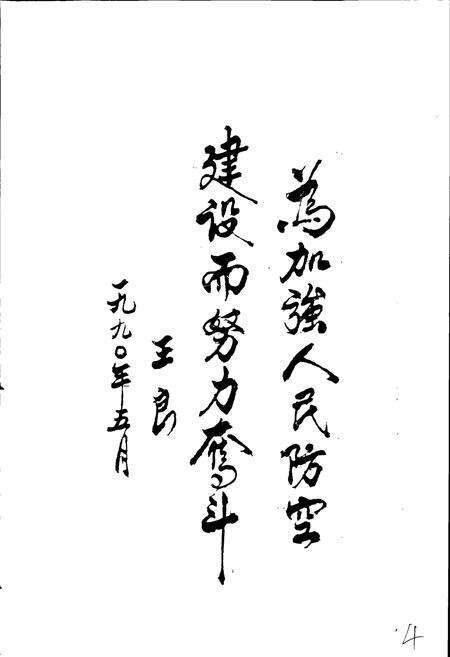 為加強人民防空
建设而努力奮斗
王良
一九九〇年五月
4